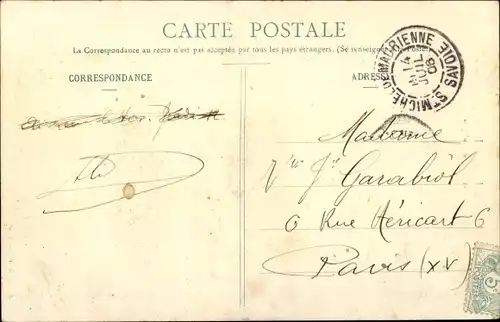 CARTE POSTALE
La Correspondance au recto n'est pas acceptée par tous les pays étrangers. (Se renseigner à la Poste)
CORRESPONDANCE
ADRESSE
ST MICHEL-DE-MAURIENNE SAVOIE
4
JUIL
06
Madame
Vve Jh Garabiol
6 Rue Héricart 6
Paris (XV)
5